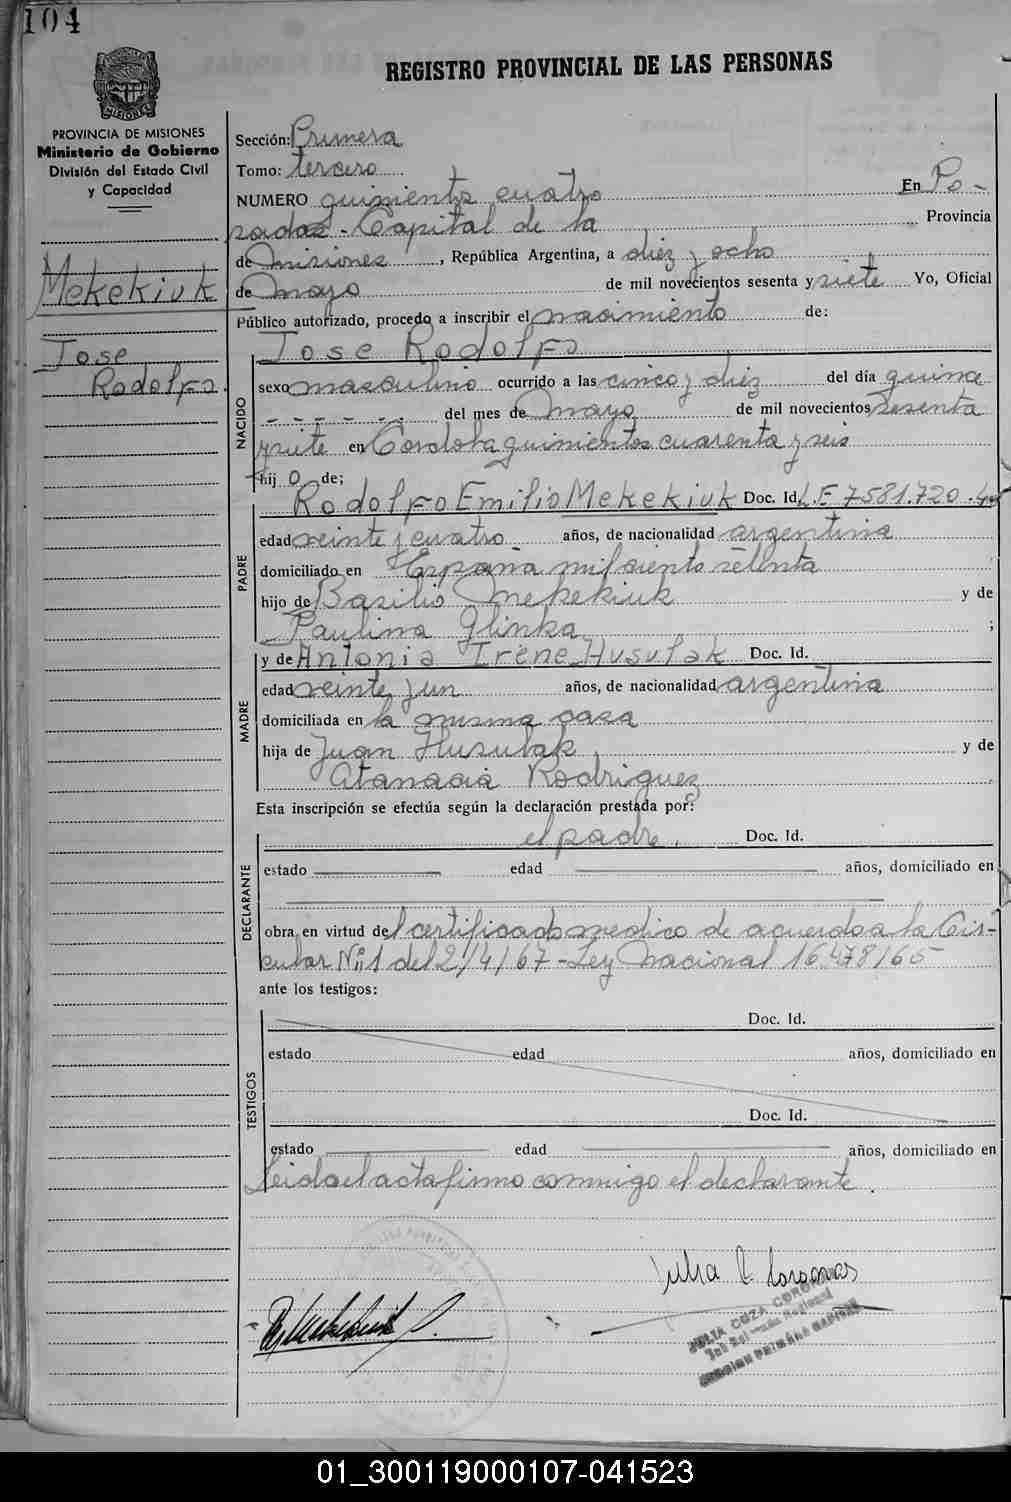 104
REGISTRO PROVINCIAL DE LAS PERSONAS
PROVINCIA DE MISIONES
Ministerio de Gobierno
División del Estado Civil
y Capacidad
Mekekiuk
Jose
Rodolfo
Sección: Primera
Tomo: tercero
NUMERO quinientos cuatro En Po-
sadas - Capital de la Provincia
de Misiones, República Argentina, a diez y ocho
de Mayo de mil novecientos sesenta y siete Yo, Oficial
Público autorizado, procedo a inscribir el nacimiento de:
Jose Rodolfo
NACIDO
sexo masculino ocurrido a las cinco y diez del día quince
del mes de Mayo de mil novecientos sesenta
y siete en Cordoba quinientos cuarenta y seis
hij o de;
Rodolfo Emilio Mekekiuk Doc. Id. L.E 7581.720
PADRE
edad veinte y cuatro años, de nacionalidad argentina
domiciliado en España mil ciento setenta
hijo de Basilio Mekekiuk y de
Paulina Glinka ;
y de Antonia Irene Husulak Doc. Id.
MADRE
edad veinte y un años, de nacionalidad argentina
domiciliada en la misma casa
hija de Juan Husulak y de
Atanacia Rodriguez
Esta inscripción se efectúa según la declaración prestada por:
el padre. Doc. Id.
DECLARANTE
estado edad años, domiciliado en
obra en virtud del certificado medico de acuerdo a la Cir-
cular Nº 1 del 2/4/67 - Ley Nacional 16.478/65
ante los testigos:
TESTIGOS
Doc. Id.
estado edad años, domiciliado en
Doc. Id.
estado edad años, domiciliado en
Leida el acta firmo conmigo el declarante.
JULIA COZA
01_300119000107-041523